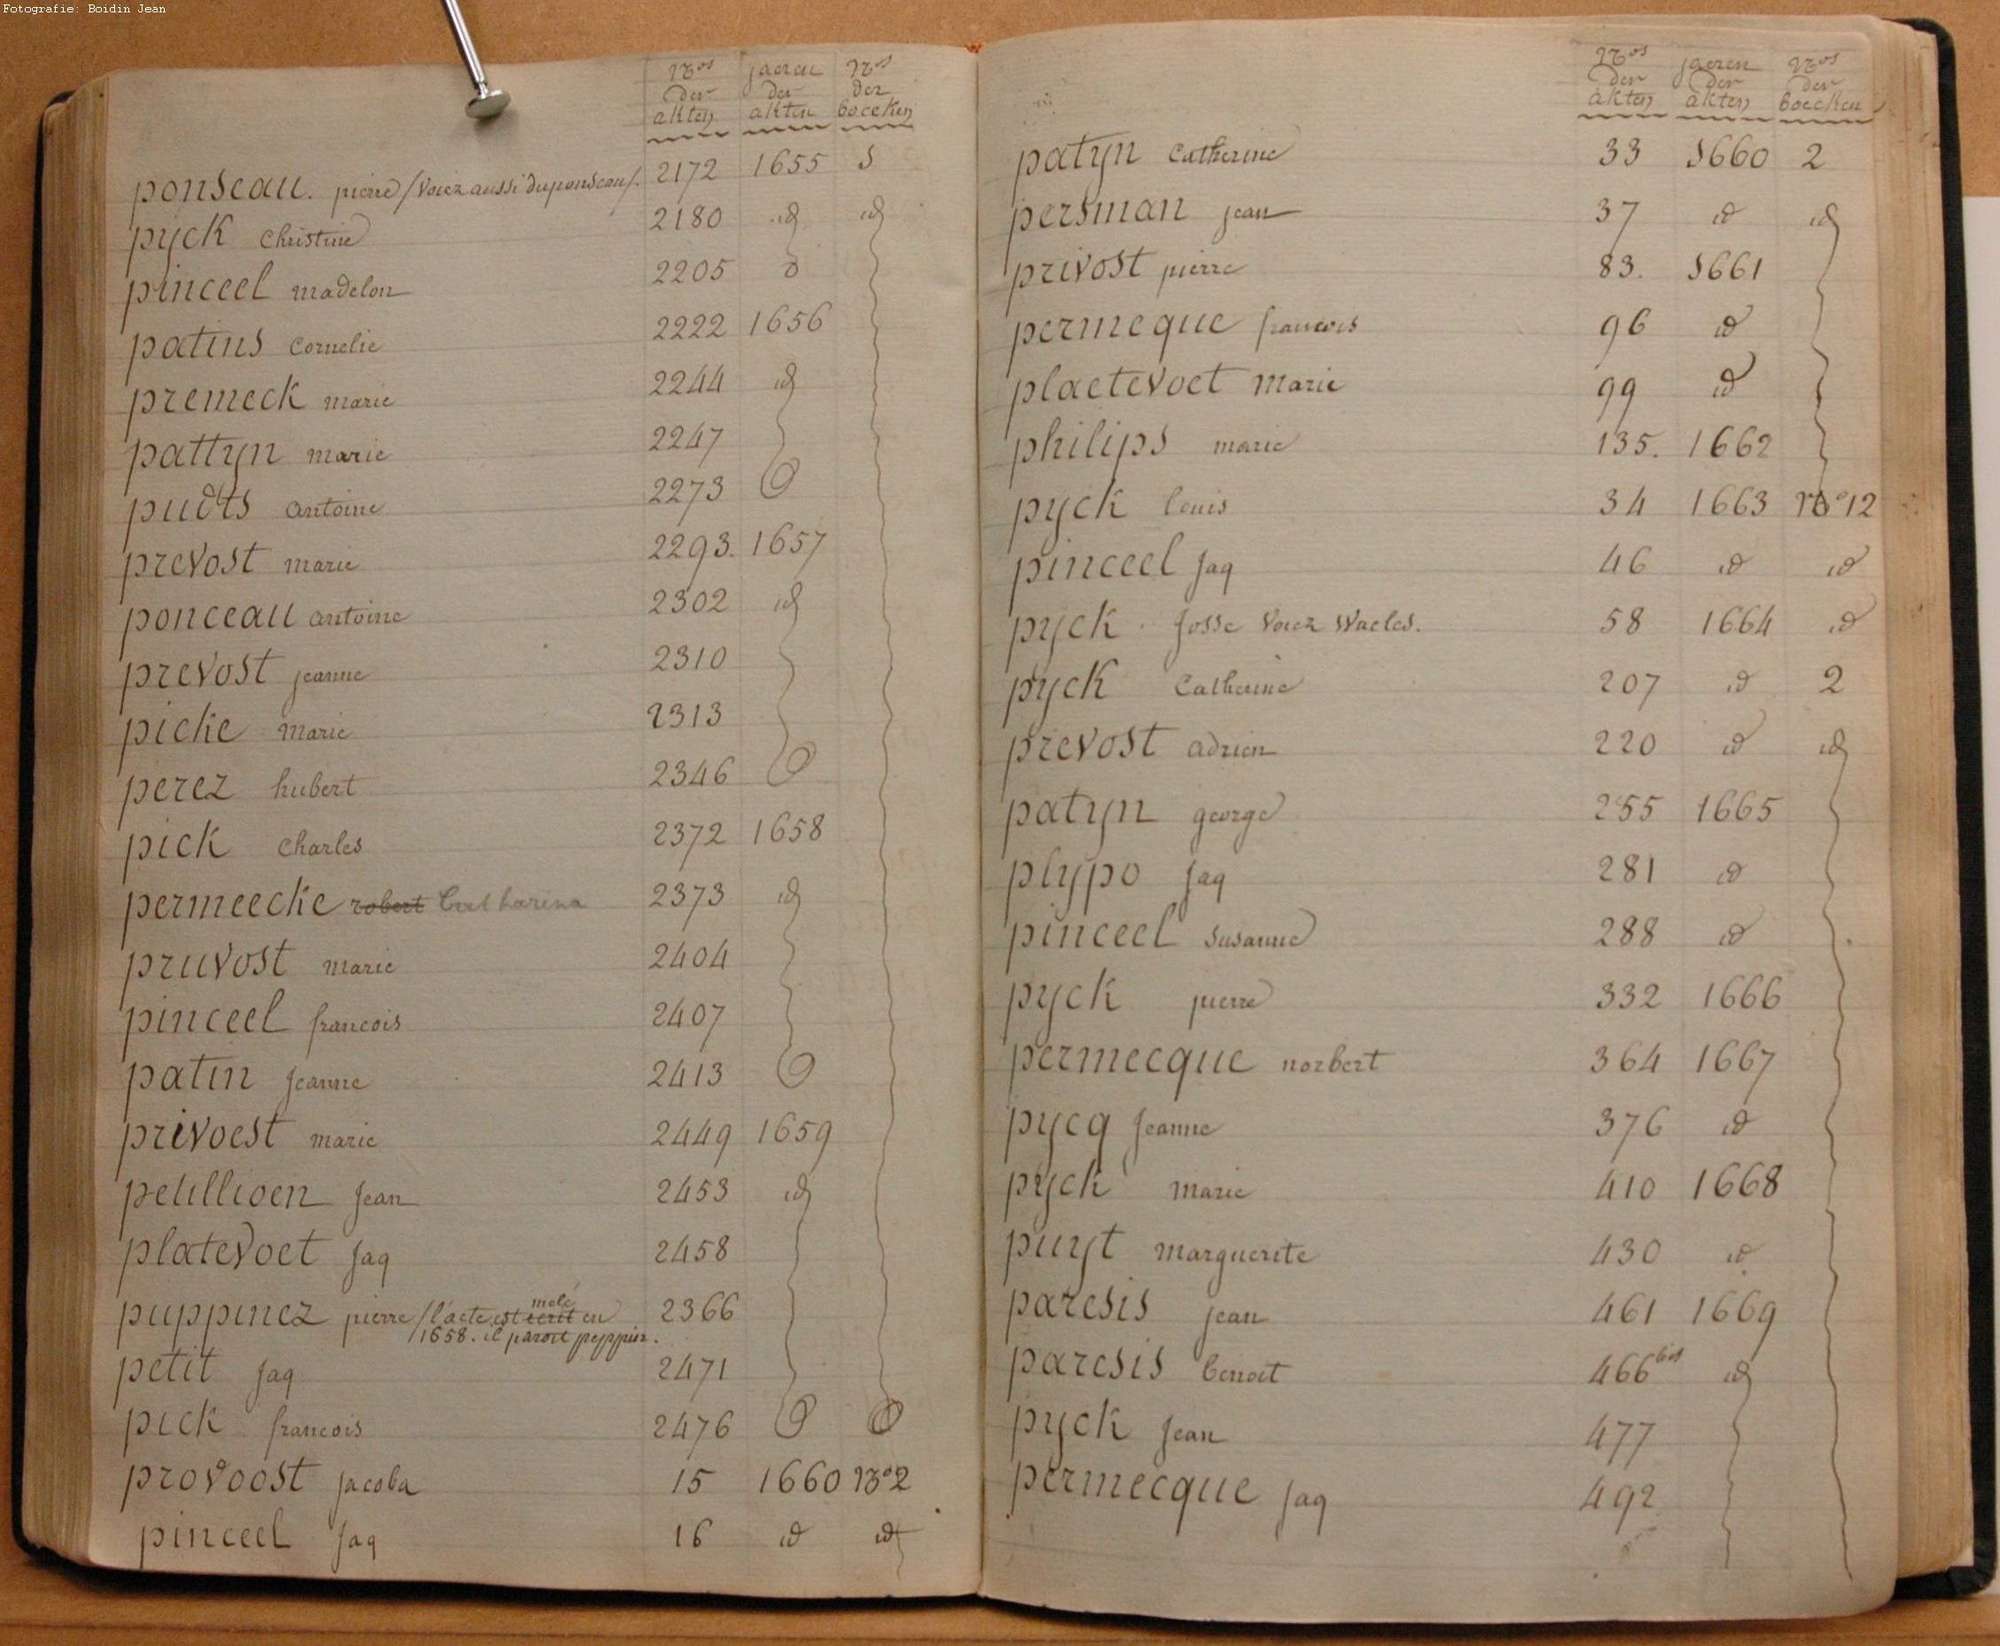 Fotografie: Boidin Jean
Nos der akten jaeren der akten Nos der boecken
ponseau. pierre / voiez aussi duponseau/. 2172 1655 1
pyck Christine 2180 id id
pinceel madelon 2205 d
patins Cornelie 2222 1656
premeck marie 2244 id
pattyn marie 2247
pudts antoine 2273
prevost marie 2293. 1657
ponceau antoine 2302 id
prevost jeanne 2310
picke marie 2313
perez hubert 2346
pick Charles 2372 1658
permeecke robert Catharina 2373 id
pruvost marie 2404
pinceel francois 2407
patin Jeanne 2413
privoest marie 2449 1659
petillioen Jean 2453 id
platevoet Jaq 2458
puppinez pierre / l'acte est ecrit melé en 2366
/1658. il paroit peyppin.
petit Jaq 2471
pick francois 2476
provoost Jacoba 15 1660 No 2
pinceel Jaq 16 id id
Nos der akten jaeren der akten Nos der boecken
patyn Catherine 33 1660 2
persman jean 37 id id
privost pierre 83. 1661
permeque francois 96 id
plaetevoet Marie 99 id
philips marie 135. 1662
pyck louis 34 1663 No 12
pinceel Jaq 46 id id
pyck Josse voiez Waeles. 58 1664 id
pyck Catherine 207 id 2
prevost adrien 220 id id
patyn george 255 1665
plypo Jaq 281 id
pinceel susanne 288 id
pyck pierre 332 1666
permecque norbert 364 1667
pycq Jeanne 376 id
pyck marie 410 1668
puyt marguerite 430 id
paresis jean 461 1669
paresis benoit 466 bis id
pyck Jean 477
permecque Jaq 492